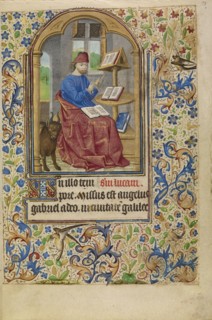 In illo tem sm lucam.
pore. Missus est angelus
gabriel a deo. in ciuitatē galilee